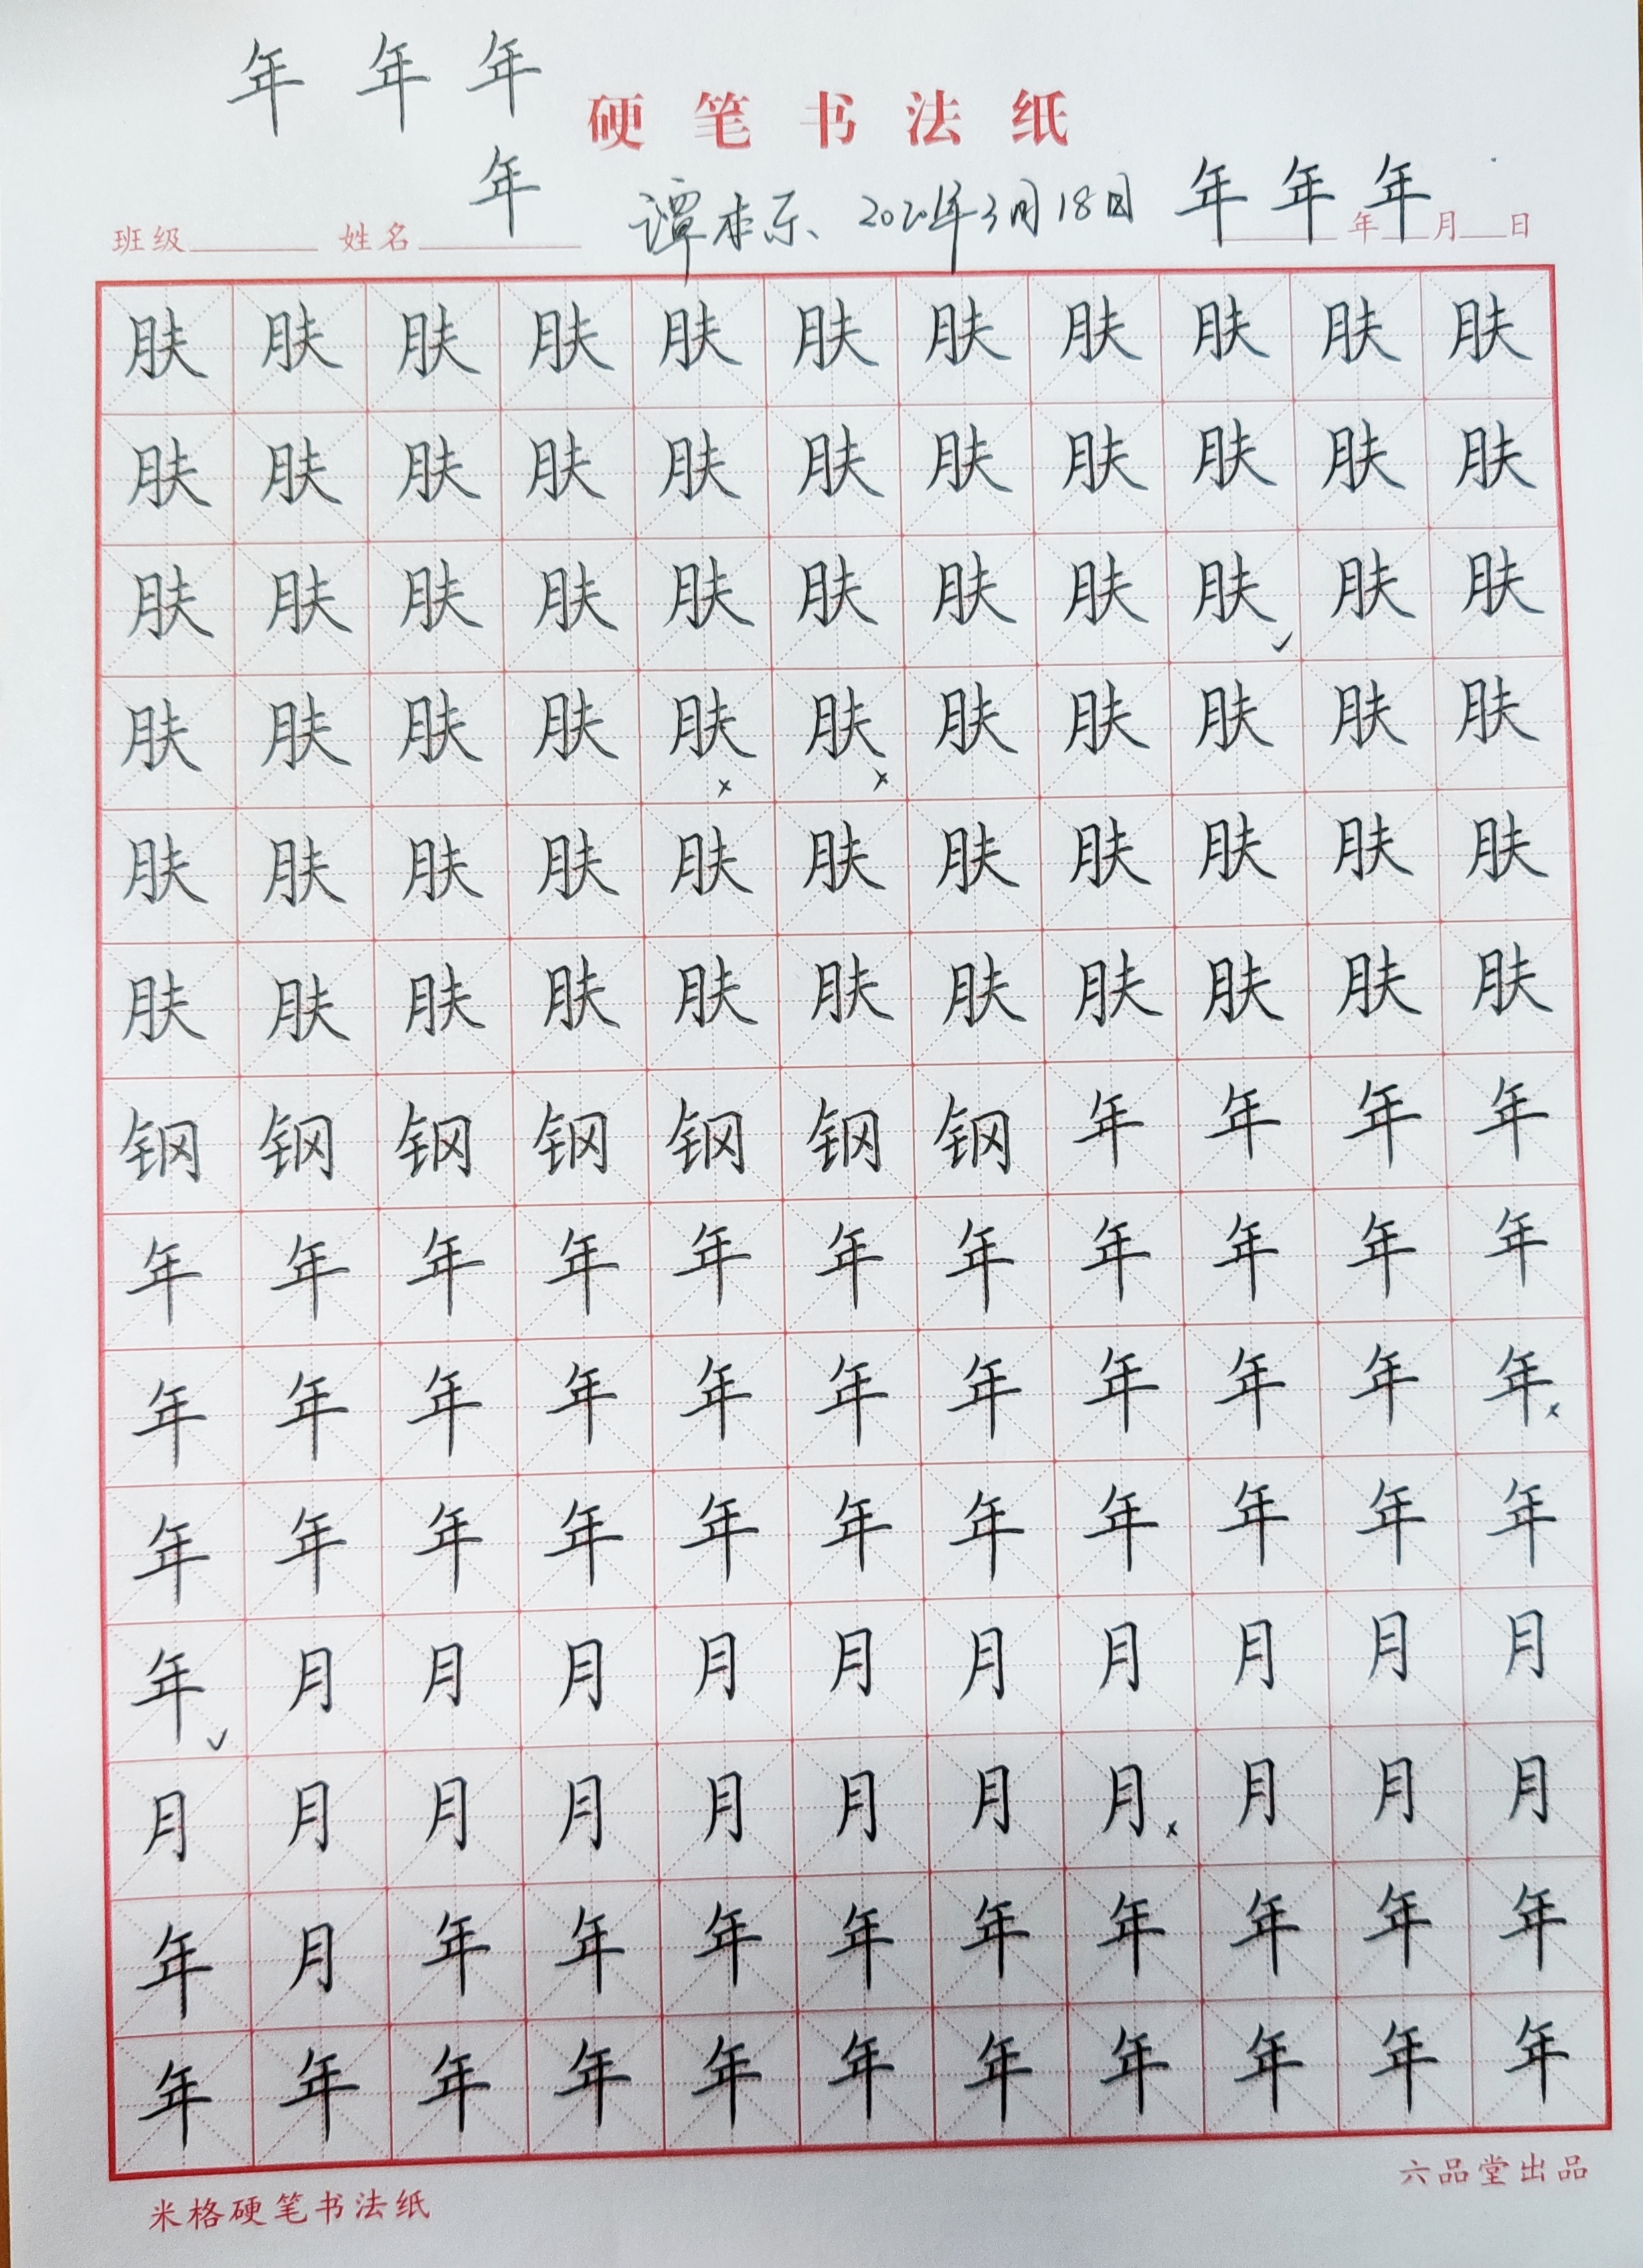 年 年 年
硬笔书法纸
年 谭本 2021年3月18日 年 年 年
班级 姓名 年 月 日
肤 肤 肤 肤 肤 肤 肤 肤 肤 肤 肤
肤 肤 肤 肤 肤 肤 肤 肤 肤 肤 肤
肤 肤 肤 肤 肤 肤 肤 肤 肤 肤 肤
肤 肤 肤 肤 肤 肤 肤 肤 肤 肤 肤
肤 肤 肤 肤 肤 肤 肤 肤 肤 肤 肤
肤 肤 肤 肤 肤 肤 肤 肤 肤 肤 肤
钢 钢 钢 钢 钢 钢 钢 年 年 年 年
年 年 年 年 年 年 年 年 年 年 年
年 年 年 年 年 年 年 年 年 年 年
年 年 年 年 年 年 年 年 年 年 年
年 月 月 月 月 月 月 月 月 月 月
月 月 月 月 月 月 月 月 月 月 月
年 月 年 年 年 年 年 年 年 年 年
年 年 年 年 年 年 年 年 年 年 年
米格硬笔书法纸 六品堂出品